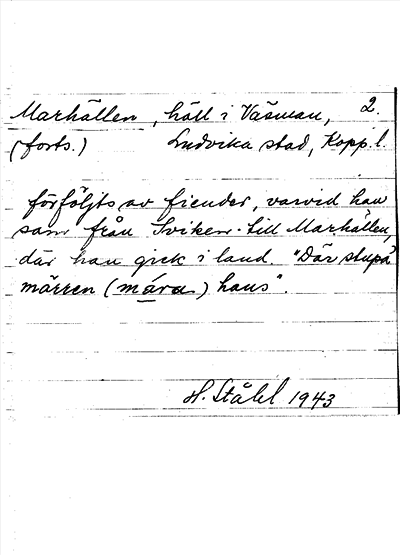 Marhällen, häll i Väsman, 2.
(forts.) Ludvika stad, Kopp. l.
förföljts av fiender, varvid han
sam från Sviken till Marhällen,
där han gick i land. "Där stupa
märren (mára) hans".
H. Ståhl 1943